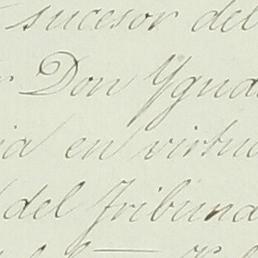 sucesor del
Don Ygna
en virtu
del Tribuna